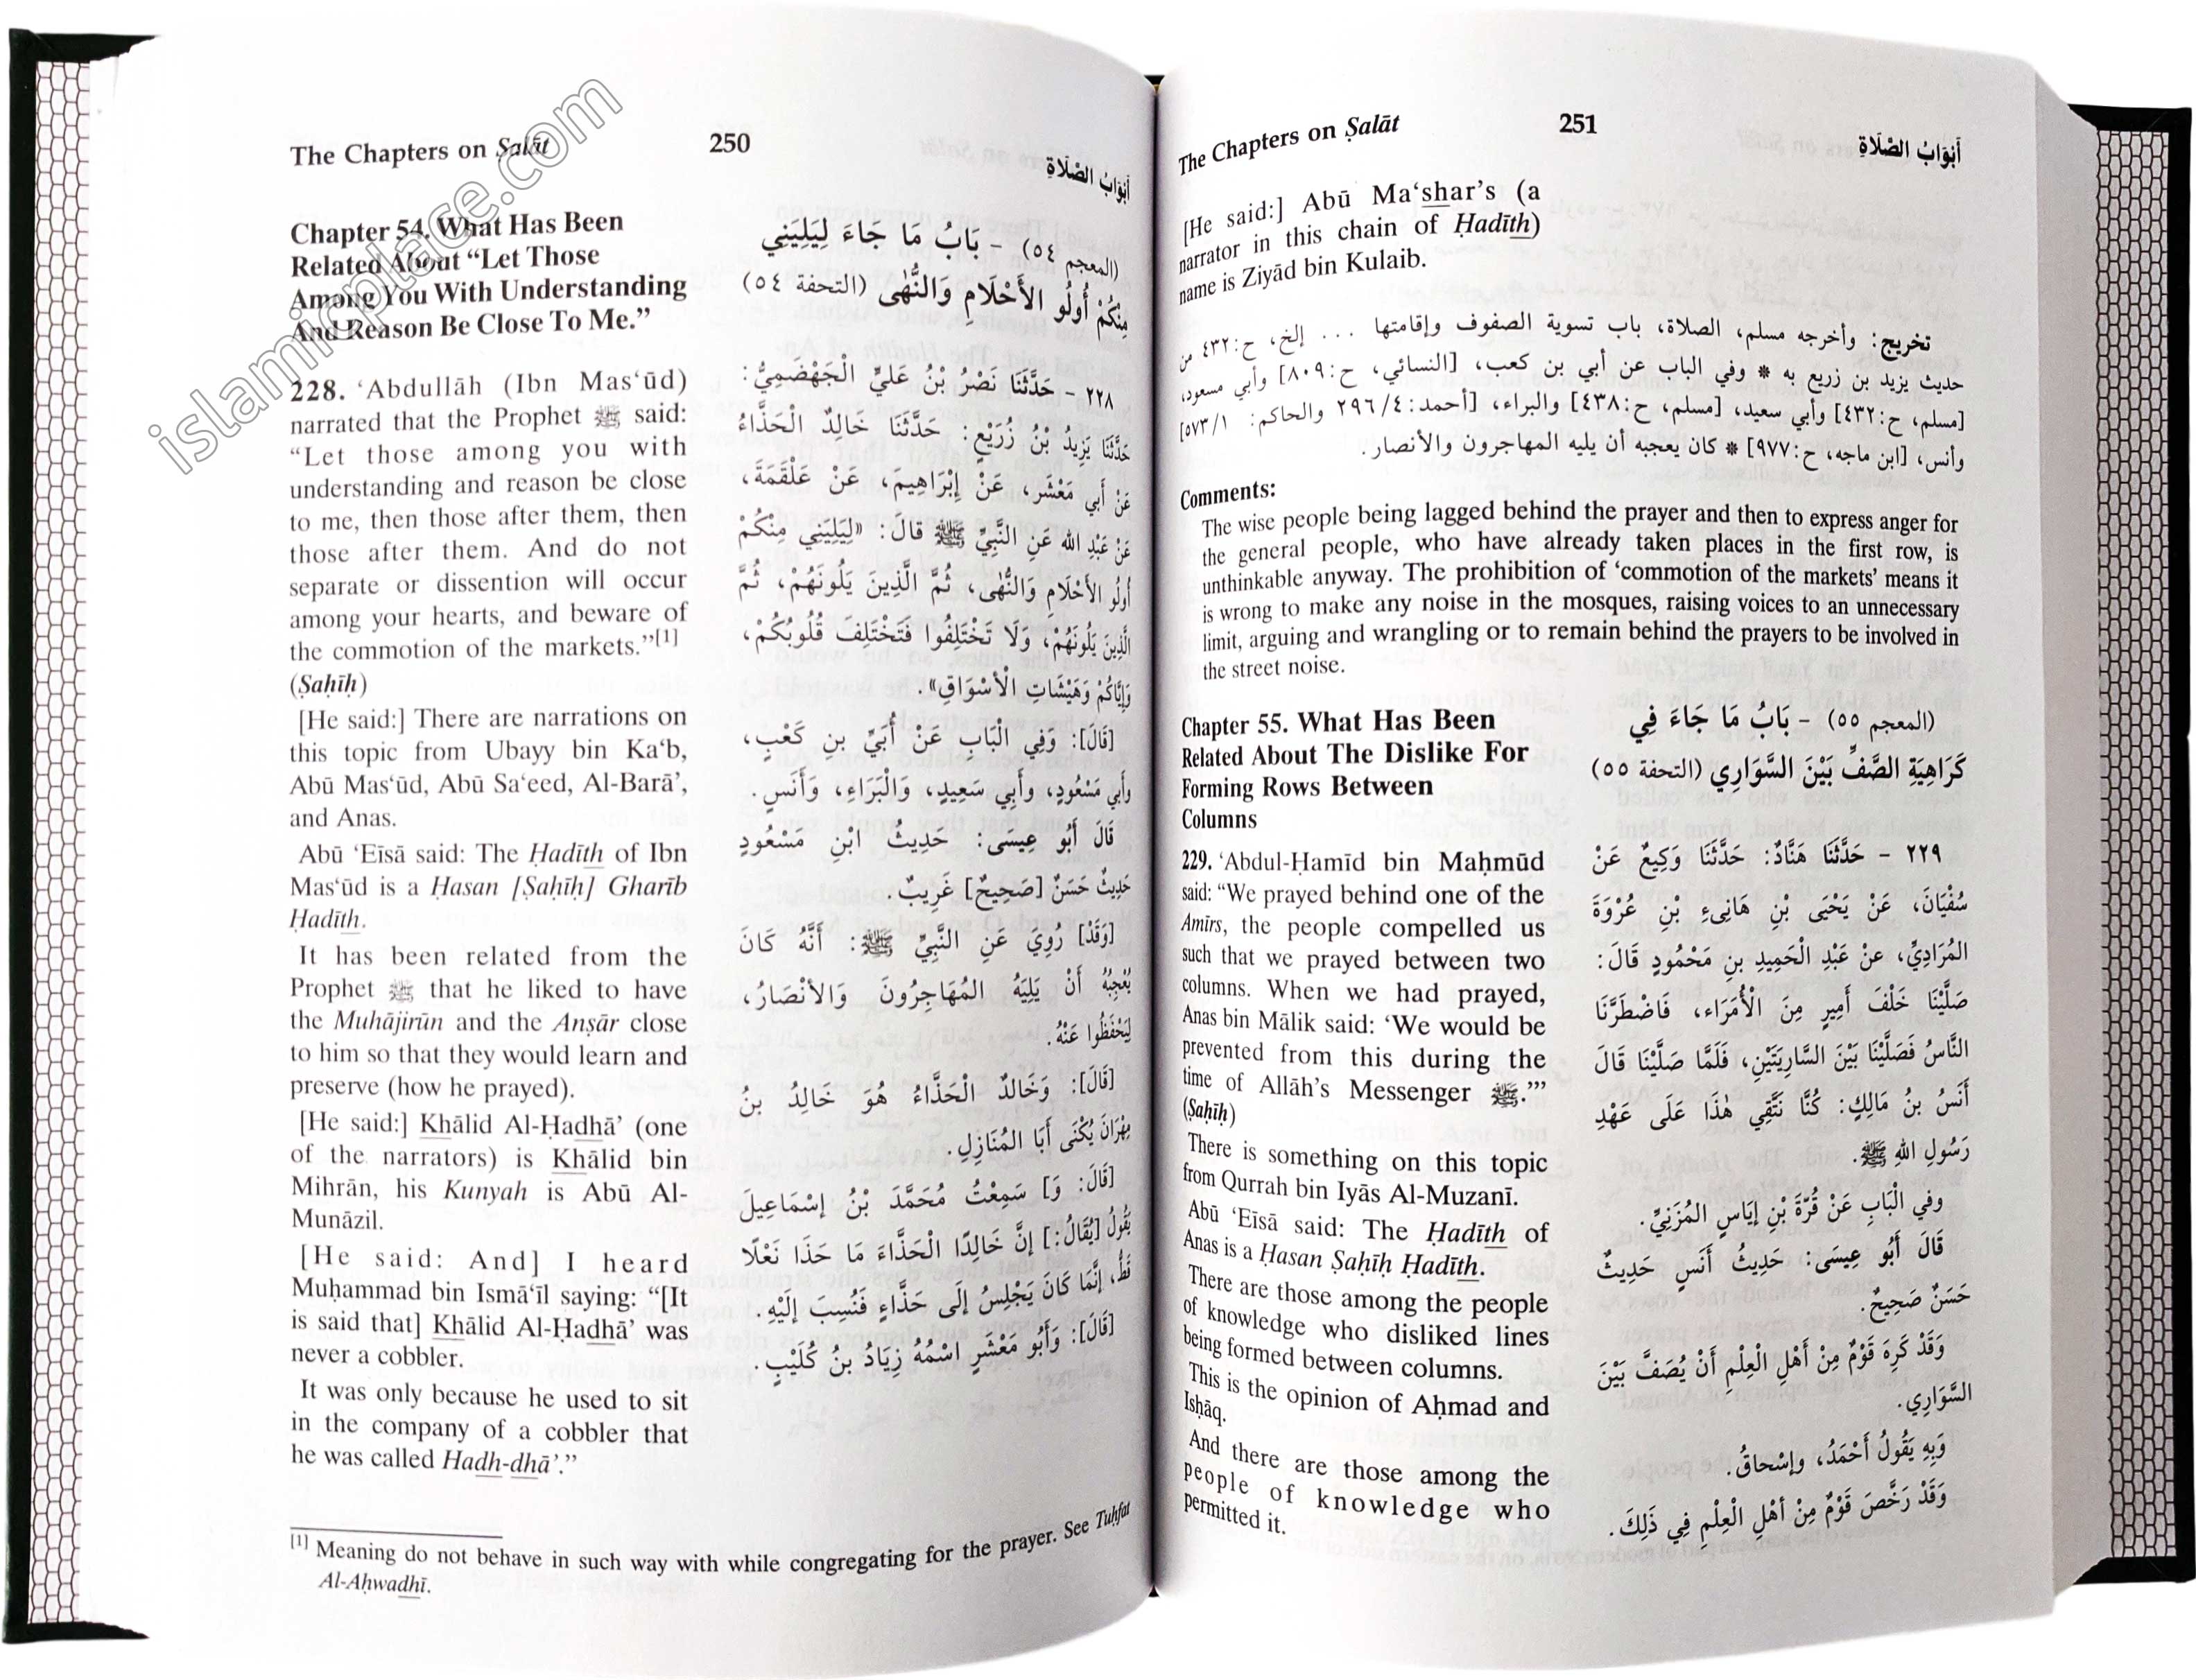 islamicplace.com
The Chapters on Ṣalāt
250
أَبْوَابُ الصَّلَاةِ
Chapter 54. What Has Been
Related About “Let Those
Among You With Understanding
And Reason Be Close To Me.”
228. ‘Abdullāh (Ibn Mas‘ūd)
narrated that the Prophet ﷺ said:
“Let those among you with
understanding and reason be close
to me, then those after them, then
those after them. And do not
separate or dissention will occur
among your hearts, and beware of
the commotion of the markets.”[1]
(Ṣaḥīḥ)
[He said:] There are narrations on
this topic from Ubayy bin Ka‘b,
Abū Mas‘ūd, Abū Sa‘eed, Al-Barā’,
and Anas.
Abū ‘Eīsā said: The Ḥadīth of Ibn
Mas‘ūd is a Ḥasan [Ṣaḥīḥ] Gharīb
Ḥadīth.
It has been related from the
Prophet ﷺ that he liked to have
the Muhājirūn and the Anṣār close
to him so that they would learn and
preserve (how he prayed).
[He said:] Khālid Al-Ḥadhā’ (one
of the narrators) is Khālid bin
Mihrān, his Kunyah is Abū Al-
Munāzil.
[He said: And] I heard
Muḥammad bin Ismā‘īl saying: “[It
is said that] Khālid Al-Ḥadhā’ was
never a cobbler.
It was only because he used to sit
in the company of a cobbler that
he was called Hadh-dhā’.”
(المعجم ٥٤) – بَابُ مَا جَاءَ لِيَلِيَنِي
مِنْكُمْ أُولُو الأَحْلَامِ وَالنُّهَى (التحفة ٥٤)
٢٢٨ – حَدَّثَنَا نَصْرُ بْنُ عَلِيٍّ الْجَهْضَمِيُّ:
حَدَّثَنَا يَزِيدُ بْنُ زُرَيْعٍ: حَدَّثَنَا خَالِدٌ الْحَذَّاءُ
عَنْ أَبِي مَعْشَرٍ، عَنْ إِبْرَاهِيمَ، عَنْ عَلْقَمَةَ،
عَنْ عَبْدِ اللهِ عَنِ النَّبِيِّ ﷺ قَالَ: «لِيَلِيَنِي مِنْكُمْ
أُولُو الأَحْلَامِ وَالنُّهَى، ثُمَّ الَّذِينَ يَلُونَهُمْ، ثُمَّ
الَّذِينَ يَلُونَهُمْ، وَلَا تَخْتَلِفُوا فَتَخْتَلِفَ قُلُوبُكُمْ،
وَإِيَّاكُمْ وَهَيْشَاتِ الأَسْوَاقِ».
[قَالَ]: وَفِي الْبَابِ عَنْ أُبَيِّ بنِ كَعْبٍ،
وَأَبِي مَسْعُودٍ، وَأَبِي سَعِيدٍ، وَالْبَرَاءِ، وَأَنَسٍ.
قَالَ أَبُو عِيسَى: حَدِيثُ ابْنِ مَسْعُودٍ
حَدِيثٌ حَسَنٌ [صَحِيحٌ] غَرِيبٌ.
[وَقَدْ] رُوِيَ عَنِ النَّبِيِّ ﷺ: أَنَّهُ كَانَ
يُعْجِبُهُ أَنْ يَلِيَهُ الْمُهَاجِرُونَ وَالأَنْصَارُ،
لِيَحْفَظُوا عَنْهُ.
[قَالَ]: وَخَالِدٌ الْحَذَّاءُ هُوَ خَالِدُ بنُ
مِهْرَانَ يُكْنَى أَبَا الْمُنَازِلِ.
[قَالَ: وَ] سَمِعْتُ مُحَمَّدَ بْنُ إِسْمَاعِيلَ
يَقُولُ [يُقَالُ:] إِنَّ خَالِدًا الْحَذَّاءَ مَا حَذَا نَعْلًا
قَطُّ، إِنَّمَا كَانَ يَجْلِسُ إِلَى حَذَّاءٍ فَنُسِبَ إِلَيْهِ.
[قَالَ]: وَأَبُو مَعْشَرٍ اسْمُهُ زِيَادُ بنُ كُلَيْبٍ.
[1] Meaning do not behave in such way with while congregating for the prayer. See Tuḥfat
Al-Aḥwadhī.
The Chapters on Ṣalāt
251
أَبْوَابُ الصَّلَاةِ
[He said:] Abū Ma‘shar’s (a
narrator in this chain of Ḥadīth)
name is Ziyād bin Kulaib.
تخريج: وأخرجه مسلم، الصلاة، باب تسوية الصفوف وإقامتها ... إلخ، ح:٤٣٢ من
حديث يزيد بن زريع به * وفي الباب عن أبي بن كعب، [النسائي، ح:٨٠٩] وأبي مسعود،
[مسلم، ح:٤٣٢] وأبي سعيد، [مسلم، ح:٤٣٨] والبراء، [أحمد:٤/٢٩٦ والحاكم: ١/٥٧٣]
وأنس، [ابن ماجه، ح:٩٧٧] * كان يعجبه أن يليه المهاجرون والأنصار.
Comments:
The wise people being lagged behind the prayer and then to express anger for
the general people, who have already taken places in the first row, is
unthinkable anyway. The prohibition of ‘commotion of the markets’ means it
is wrong to make any noise in the mosques, raising voices to an unnecessary
limit, arguing and wrangling or to remain behind the prayers to be involved in
the street noise.
Chapter 55. What Has Been
Related About The Dislike For
Forming Rows Between
Columns
229. ‘Abdul-Ḥamīd bin Maḥmūd
said: “We prayed behind one of the
Amīrs, the people compelled us
such that we prayed between two
columns. When we had prayed,
Anas bin Mālik said: ‘We would be
prevented from this during the
time of Allāh’s Messenger ﷺ.’”
(Ṣaḥīḥ)
There is something on this topic
from Qurrah bin Iyās Al-Muzanī.
Abū ‘Eīsā said: The Ḥadīth of
Anas is a Ḥasan Ṣaḥīḥ Ḥadīth.
There are those among the people
of knowledge who disliked lines
being formed between columns.
This is the opinion of Aḥmad and
Isḥāq.
And there are those among the
people of knowledge who
permitted it.
(المعجم ٥٥) – بَابُ مَا جَاءَ فِي
كَرَاهِيَةِ الصَّفِّ بَيْنَ السَّوَارِي (التحفة ٥٥)
٢٢٩ – حَدَّثَنَا هَنَّادٌ: حَدَّثَنَا وَكِيعٌ عَنْ
سُفْيَانَ، عَنْ يَحْيَى بْنِ هَانِىءِ بْنِ عُرْوَةَ
الْمُرَادِيِّ، عنْ عَبْدِ الْحَمِيدِ بنِ مَحْمُودٍ قَالَ:
صَلَّيْنَا خَلْفَ أَمِيرٍ مِنَ الْأُمَرَاءِ، فَاضْطَرَّنَا
النَّاسُ فَصَلَّيْنَا بَيْنَ السَّارِيَتَيْنِ، فَلَمَّا صَلَّيْنَا قَالَ
أَنَسُ بنُ مَالِكٍ: كُنَّا نَتَّقِي هٰذَا عَلَى عَهْدِ
رَسُولِ اللهِ ﷺ.
وفي الْبَابِ عَنْ قُرَّةَ بْنِ إِيَاسٍ الْمُزَنِيِّ.
قَالَ أَبُو عِيسَى: حَدِيثُ أَنَسٍ حَدِيثٌ
حَسَنٌ صَحِيحٌ.
وَقَدْ كَرِهَ قَوْمٌ مِنْ أَهْلِ الْعِلْمِ أَنْ يُصَفَّ بَيْنَ
السَّوَارِي.
وَبِهِ يَقُولُ أَحْمَدُ، وإسْحاقُ.
وَقَدْ رَخَّصَ قَوْمٌ مِنْ أهْلِ الْعِلْمِ فِي ذَلِكَ.